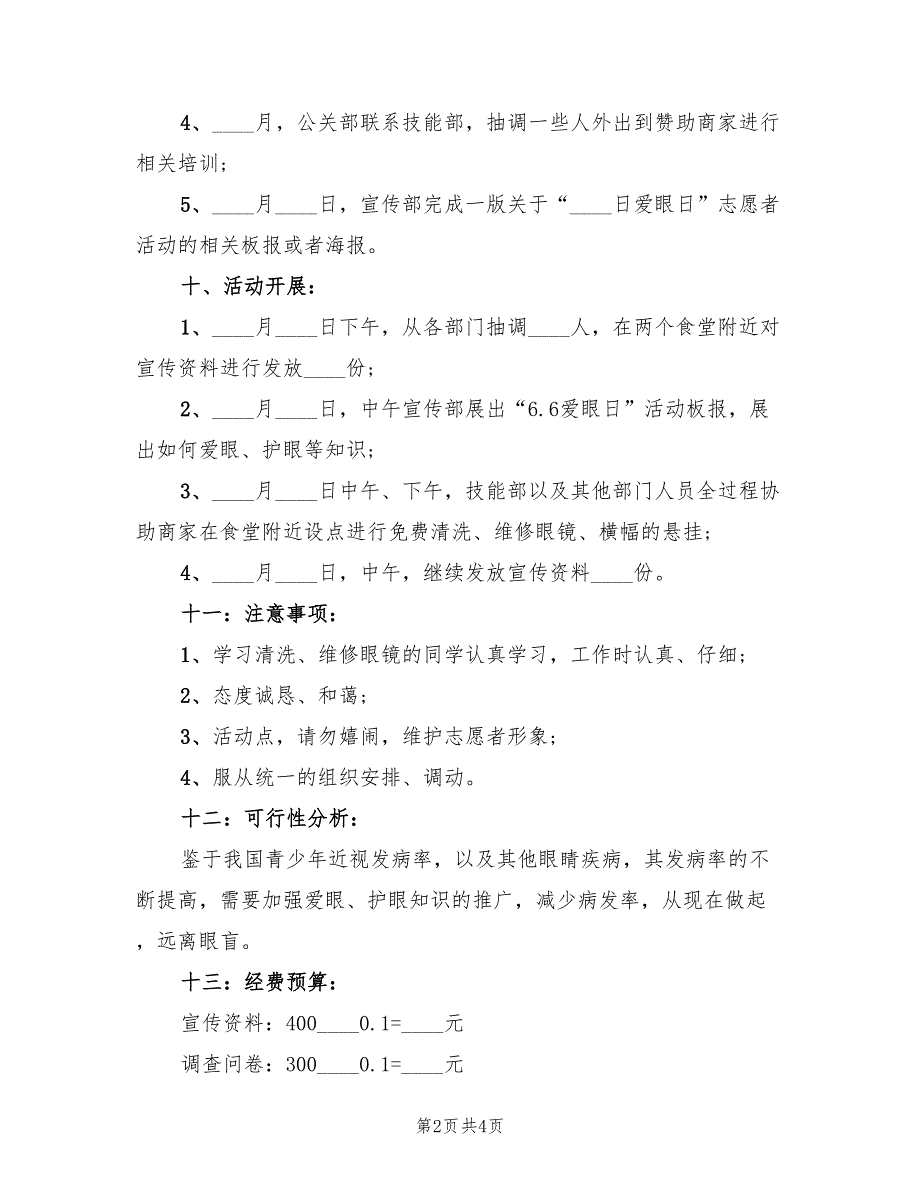 4、____月，公关部联系技能部，抽调一些人外出到赞助商家进行
相关培训；
5、____月____日，宣传部完成一版关于“____日爱眼日”志愿者
活动的相关板报或者海报。
十、活动开展：
1、____月____日下午，从各部门抽调____人，在两个食堂附近对
宣传资料进行发放____份；
2、____月____日，中午宣传部展出“6.6爱眼日”活动板报，展
出如何爱眼、护眼等知识；
3、____月____日中午、下午，技能部以及其他部门人员全过程协
助商家在食堂附近设点进行免费清洗、维修眼镜、横幅的悬挂；
4、____月____日，中午，继续发放宣传资料____份。
十一：注意事项：
1、学习清洗、维修眼镜的同学认真学习，工作时认真、仔细；
2、态度诚恳、和蔼；
3、活动点，请勿嬉闹，维护志愿者形象；
4、服从统一的组织安排、调动。
十二：可行性分析：
鉴于我国青少年近视发病率，以及其他眼睛疾病，其发病率的不
断提高，需要加强爱眼、护眼知识的推广，减少病发率，从现在做起
，远离眼盲。
十三：经费预算：
宣传资料：400____0.1=____元
调查问卷：300____0.1=____元
第2页共4页